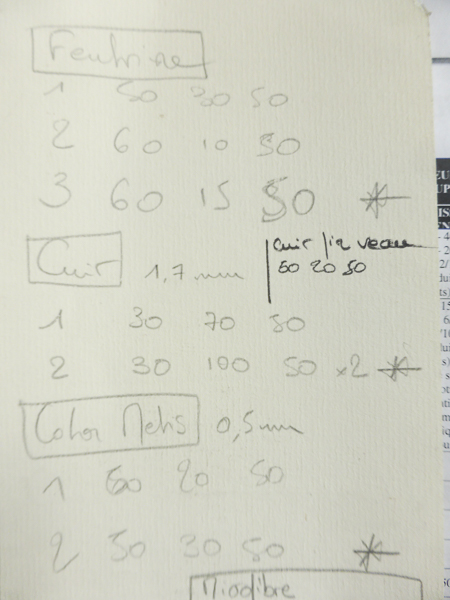 Feutrine
1 50 30 50
2 60 10 50
3 60 15 50 *
Cuir 1,7 mm
cuir fin veau
50 20 50
1 30 70 50
2 30 100 50 x2 *
Coton Metis 0,5mm
1 60 20 50
2 50 30 50 *